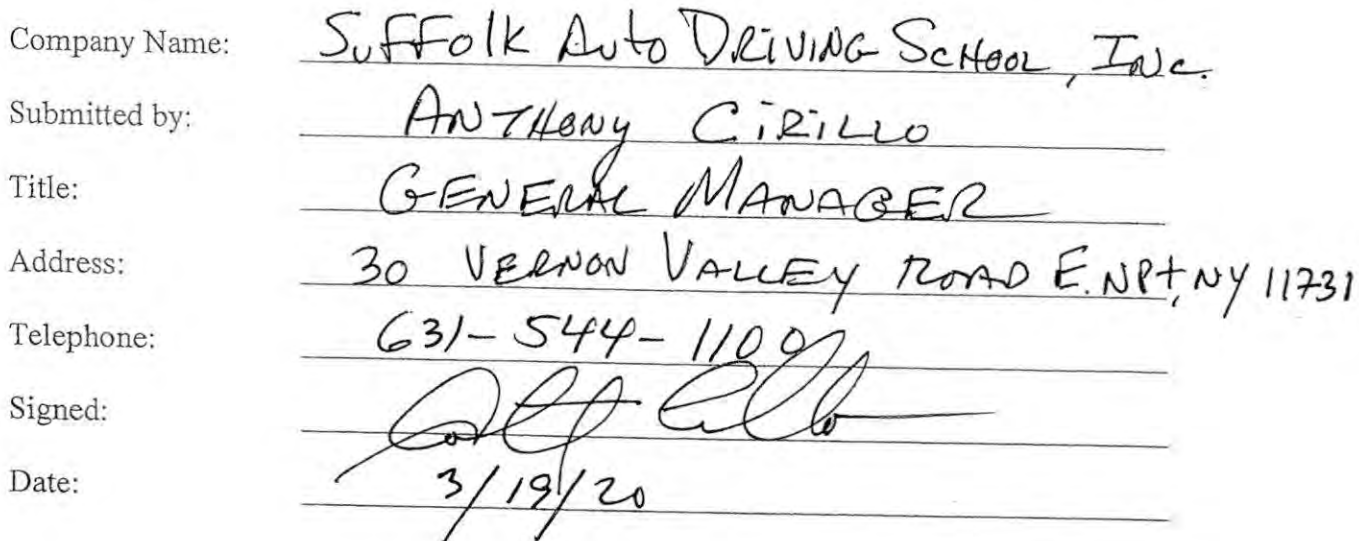 Company Name: SuFFolk Auto DRiViNG ScHooL, INc.
Submitted by: ANTHONY CiRiLLO
Title: GENERAL MANAGER
Address: 30 VERNON VALLEY ROAD E. NPt, NY 11731
Telephone: 631-544-1100
Signed:
Date: 3/19/20